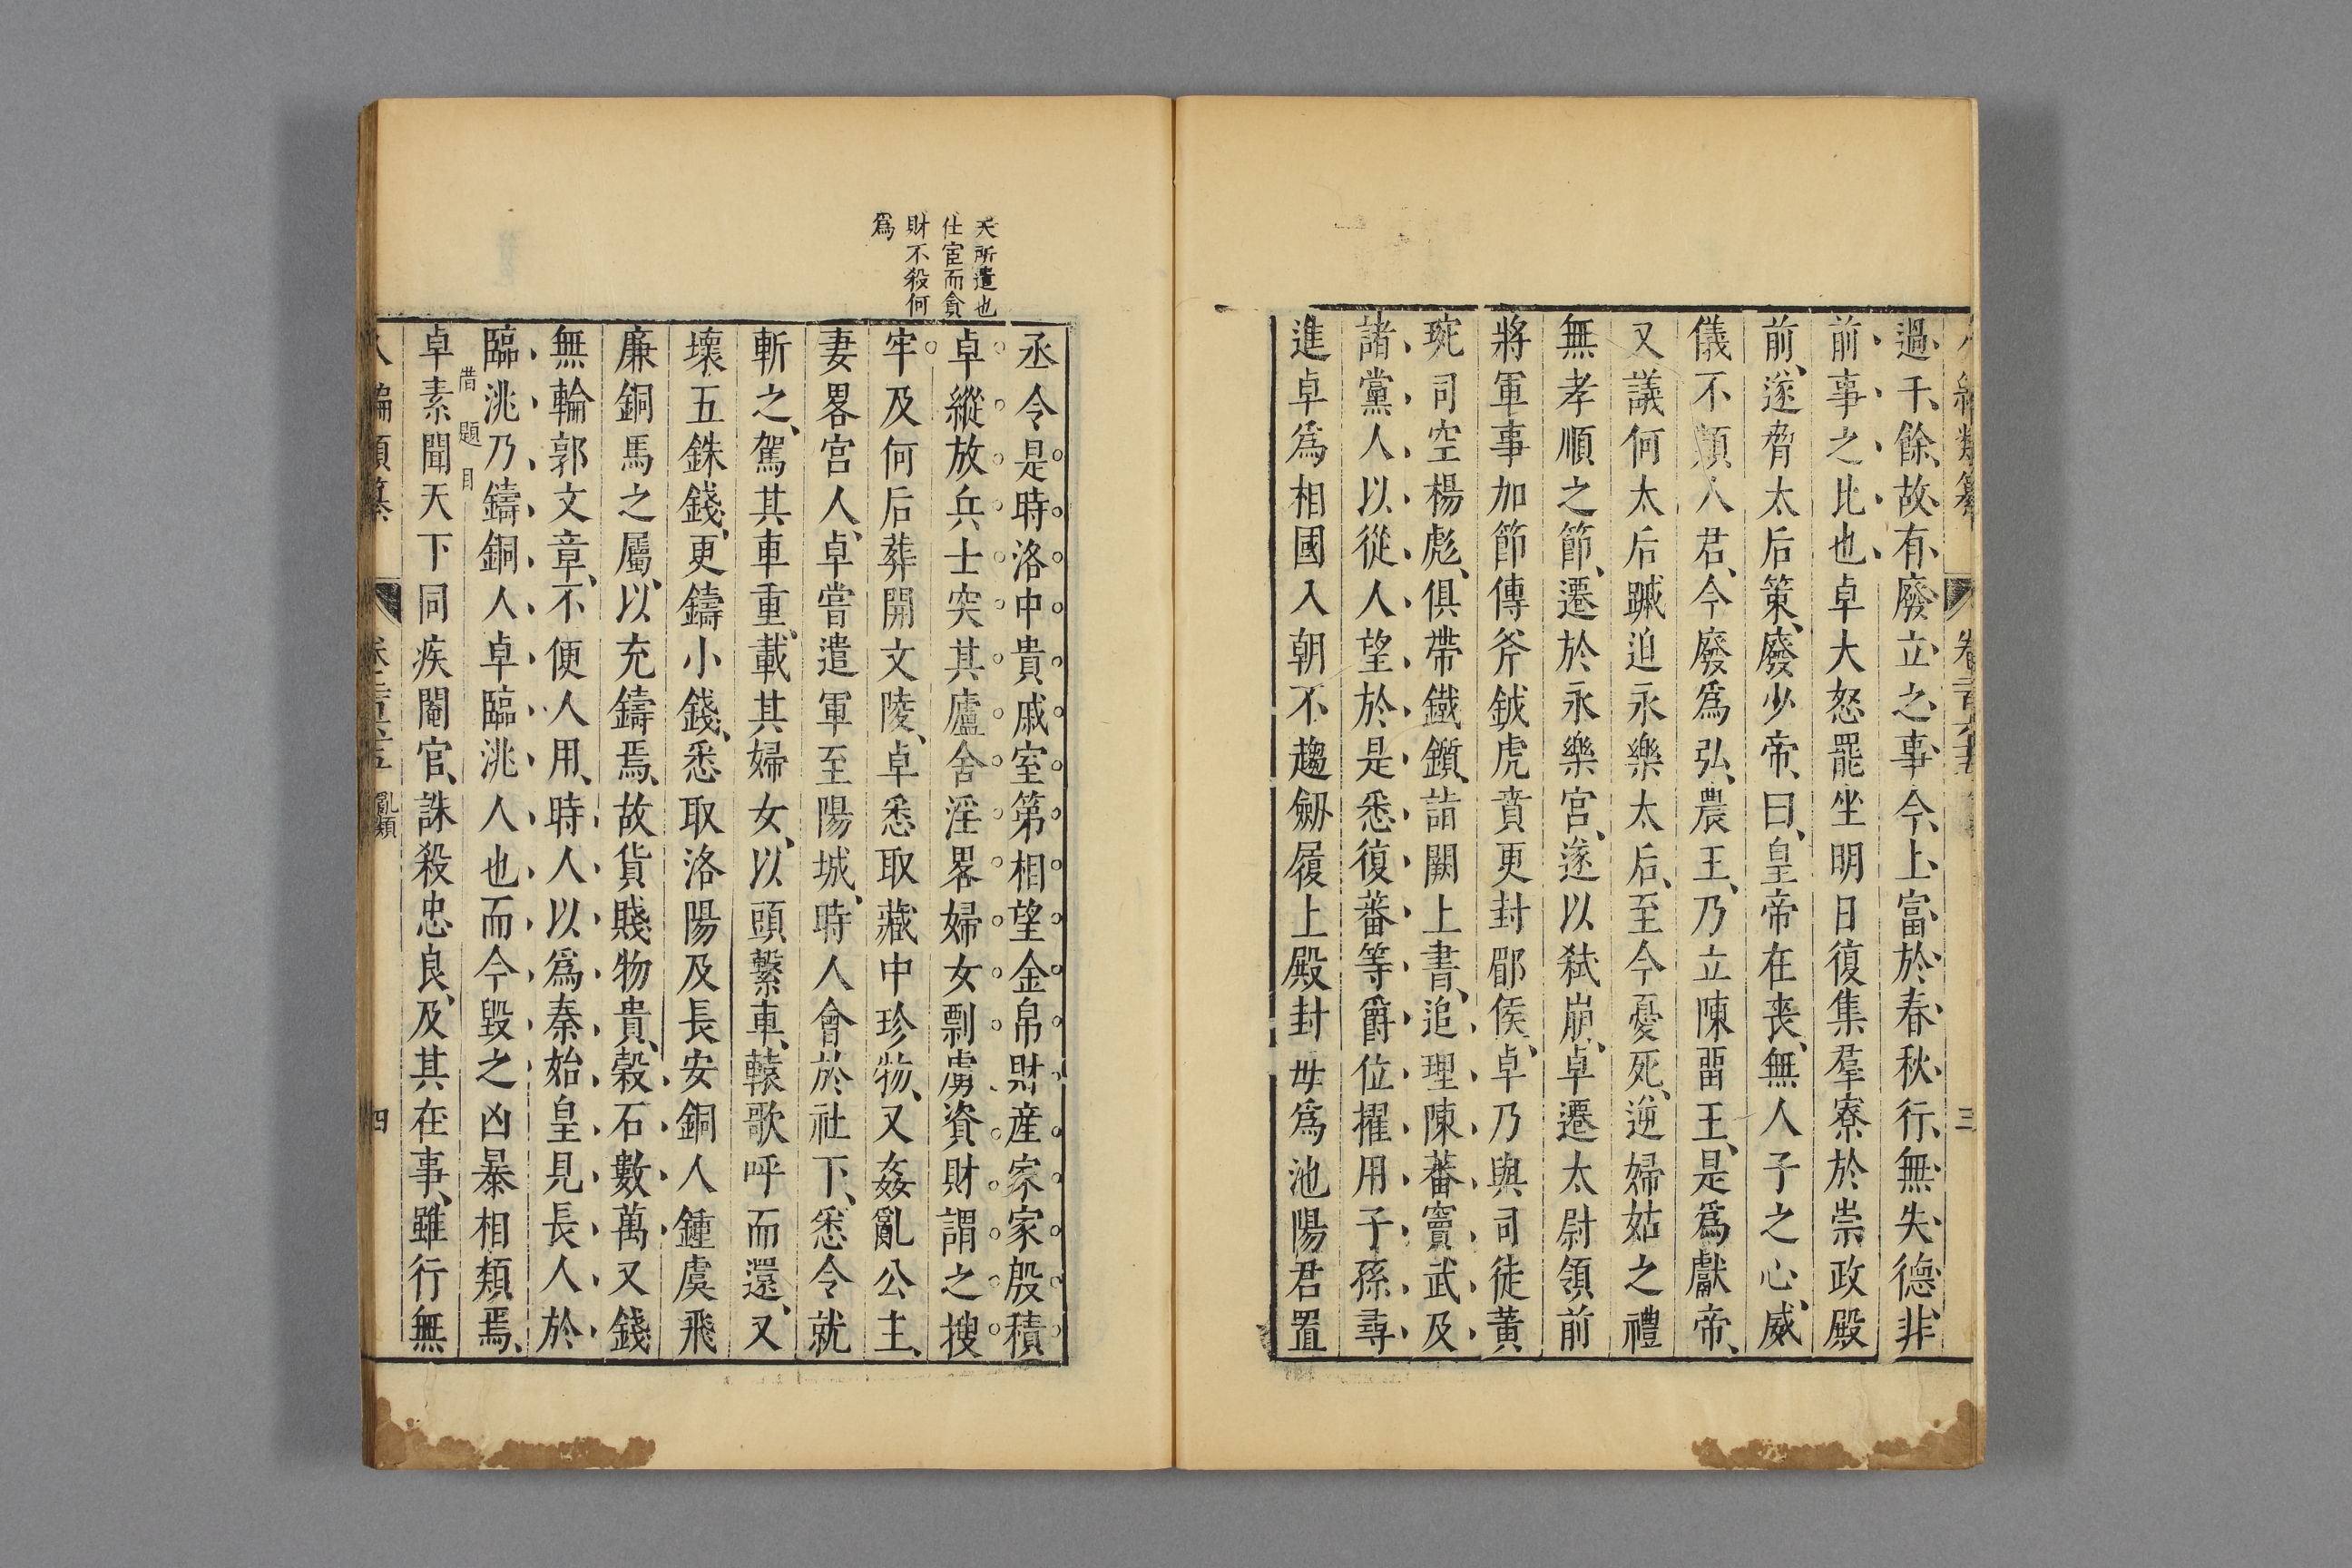 過千餘故有廢立之事今上富於春秋行無失德非
前事之比也卓大怒罷坐明日復集羣寮於崇政殿
前遂脅太后策廢少帝曰皇帝在喪無人子之心威
儀不類人君今廢爲弘農王乃立陳畱王是爲獻帝
又議何太后踧迫永樂太后至今憂死逆婦姑之禮
無孝順之節遷於永樂宮遂以弒崩卓遷太尉領前
將軍事加節傳斧鉞虎賁更封郿侯卓乃與司徒黃
琬司空楊彪俱帶鐵鑕詣闕上書追理陳蕃竇武及
諸黨人以從人望於是悉復蕃等爵位擢用子孫尋
進卓爲相國入朝不趨劒履上殿封毋爲池陽君置
天所遣也
仕宦而貪
財不殺何
爲
丞令是時洛中貴戚室第相望金帛財産家家殷積
卓縱放兵士突其廬舍淫畧婦女剽虜資財謂之搜
牢及何后葬開文陵卓悉取藏中珍物又姦亂公主
妻畧宮人卓嘗遣軍至陽城時人會於社下悉令就
斬之駕其車重載其婦女以頭繫車轅歌呼而還又
壞五銖錢更鑄小錢悉取洛陽及長安銅人鍾虡飛
廉銅馬之屬以充鑄焉故貨賤物貴穀石數萬又錢
無輪郭文章不便人用時人以爲秦始皇見長人於
臨洮乃鑄銅人卓臨洮人也而今毀之凶暴相類焉
借題目
卓素聞天下同疾閹官誅殺忠良及其在事雖行無
編類纂
亂類
四